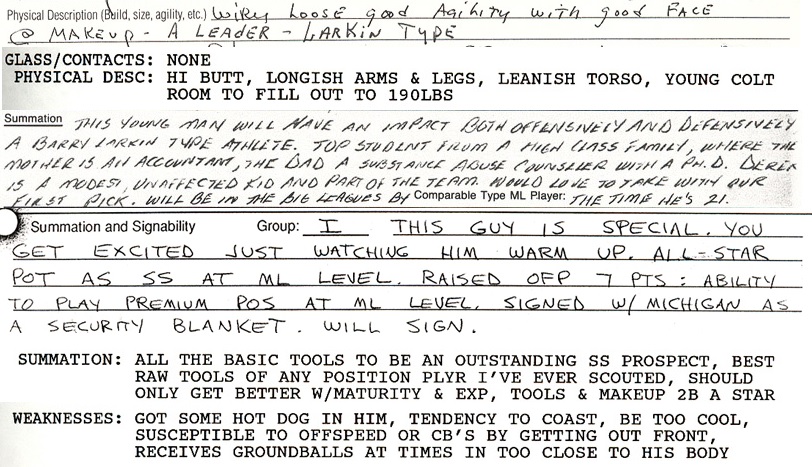 Physical Description (Build, size, agility, etc.) Wiry Loose good Agility with good FACE
@ MAKEUP - A LEADER - LARKIN TYPE
GLASS/CONTACTS: NONE
PHYSICAL DESC: HI BUTT, LONGISH ARMS & LEGS, LEANISH TORSO, YOUNG COLT
ROOM TO FILL OUT TO 190LBS
Summation THIS YOUNG MAN WILL HAVE AN IMPACT BOTH OFFENSIVELY AND DEFENSIVELY
A BARRY LARKIN TYPE ATHLETE. TOP STUDENT FROM A HIGH CLASS FAMILY, WHERE THE
MOTHER IS AN ACCOUNTANT, THE DAD A SUBSTANCE ABUSE COUNSELER WITH A PH.D. DEREK
IS A MODEST, UNAFFECTED KID AND PART OF THE TEAM. WOULD LOVE TO TAKE WITH OUR
FIRST PICK. WILL BE IN THE BIG LEAGUES BY Comparable Type ML Player: THE TIME HE'S 21.
Summation and Signability Group: I THIS GUY IS SPECIAL. YOU
GET EXCITED JUST WATCHING HIM WARM UP. ALL-STAR
POT AS SS AT ML LEVEL. RAISED OFP 7 PTS: ABILITY
TO PLAY PREMIUM POS AT ML LEVEL. SIGNED W/ MICHIGAN AS
A SECURITY BLANKET. WILL SIGN.
SUMMATION: ALL THE BASIC TOOLS TO BE AN OUTSTANDING SS PROSPECT, BEST
RAW TOOLS OF ANY POSITION PLYR I'VE EVER SCOUTED, SHOULD
ONLY GET BETTER W/MATURITY & EXP, TOOLS & MAKEUP 2B A STAR
WEAKNESSES: GOT SOME HOT DOG IN HIM, TENDENCY TO COAST, BE TOO COOL,
SUSCEPTIBLE TO OFFSPEED OR CB'S BY GETTING OUT FRONT,
RECEIVES GROUNDBALLS AT TIMES IN TOO CLOSE TO HIS BODY